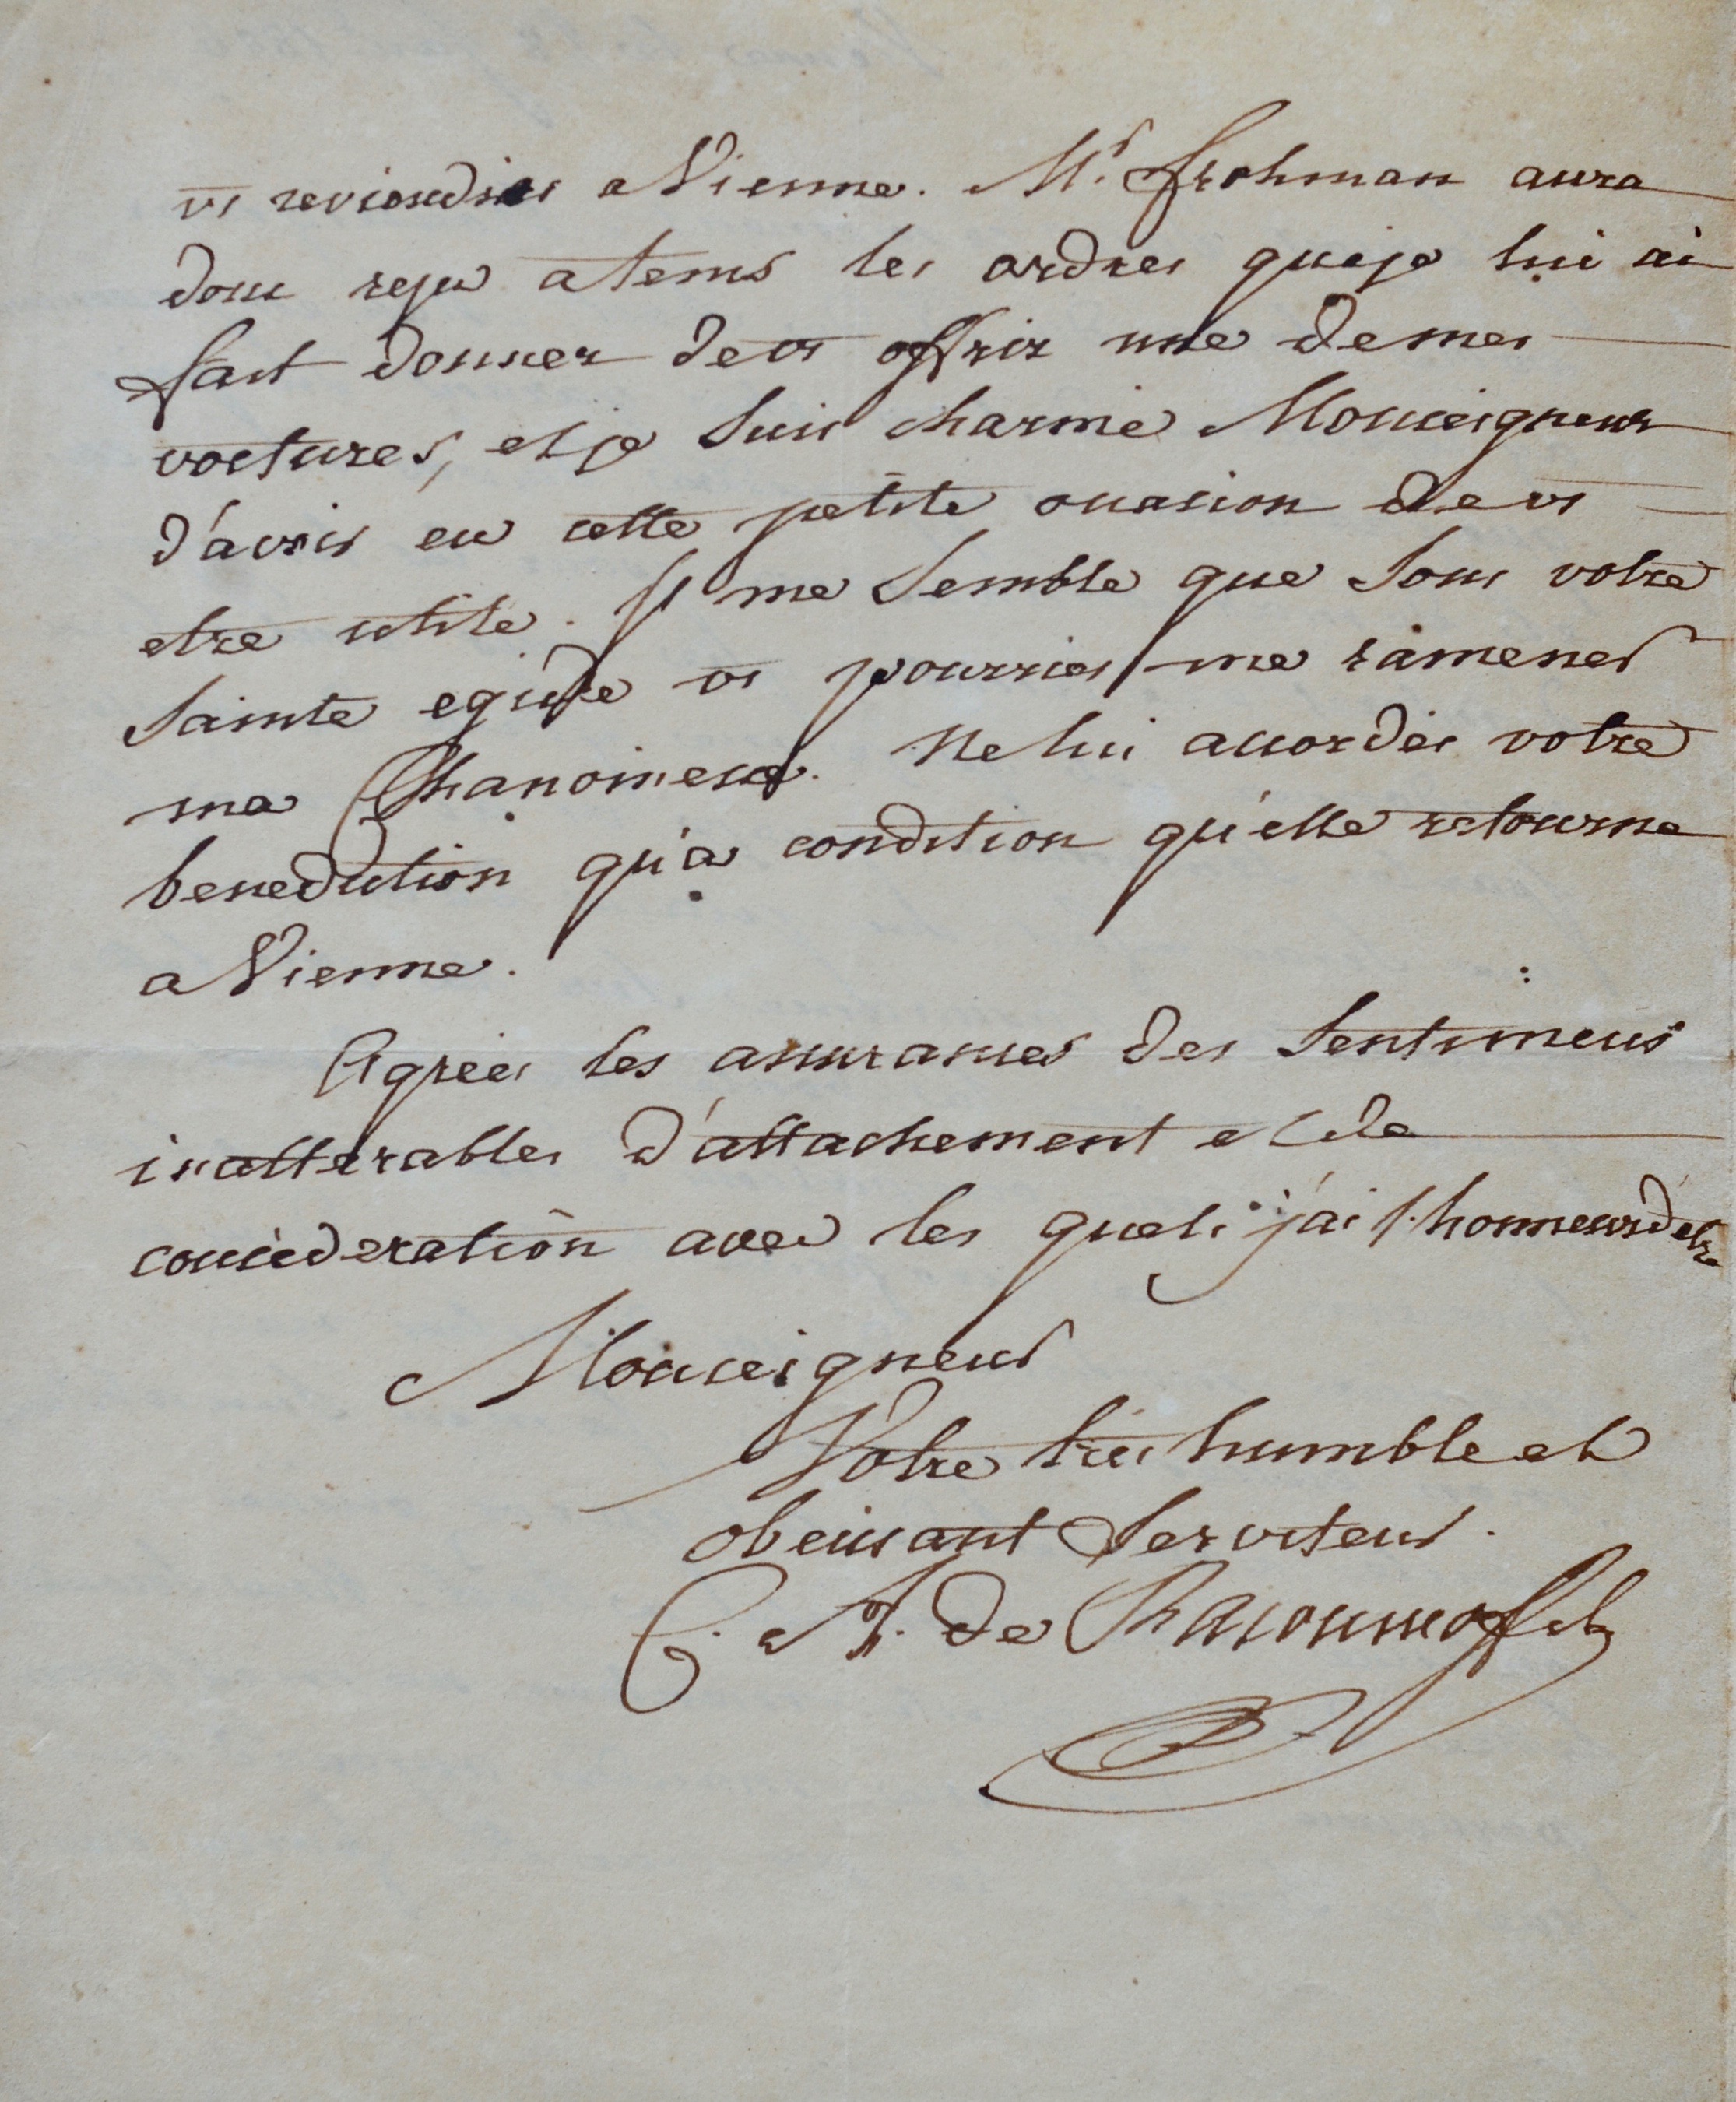 vs reviendres a Vienne. Mr. Frohman aura
donc reçu a tems les ordres que je lui ai
fait donner de vs offrir une de mes
voitures, et je suis charmé Monseigneur
d'avoir eu cette petite occasion de vs
etre utile. Il me semble que sous votre
Sainte egide vs pourries me ramener
ma Chanoinesse. Ne lui accordés votre
benediction qu'a condition qu'elle retourne
a Vienne.
Agrées les assurances des sentimens
inalterables d'attachement et de
consideration avec les quels j'ai l'honneur d'etre
Monseigneur
Votre très humble et
obeissant Serviteur.
C. A. de Rasoumoffsky